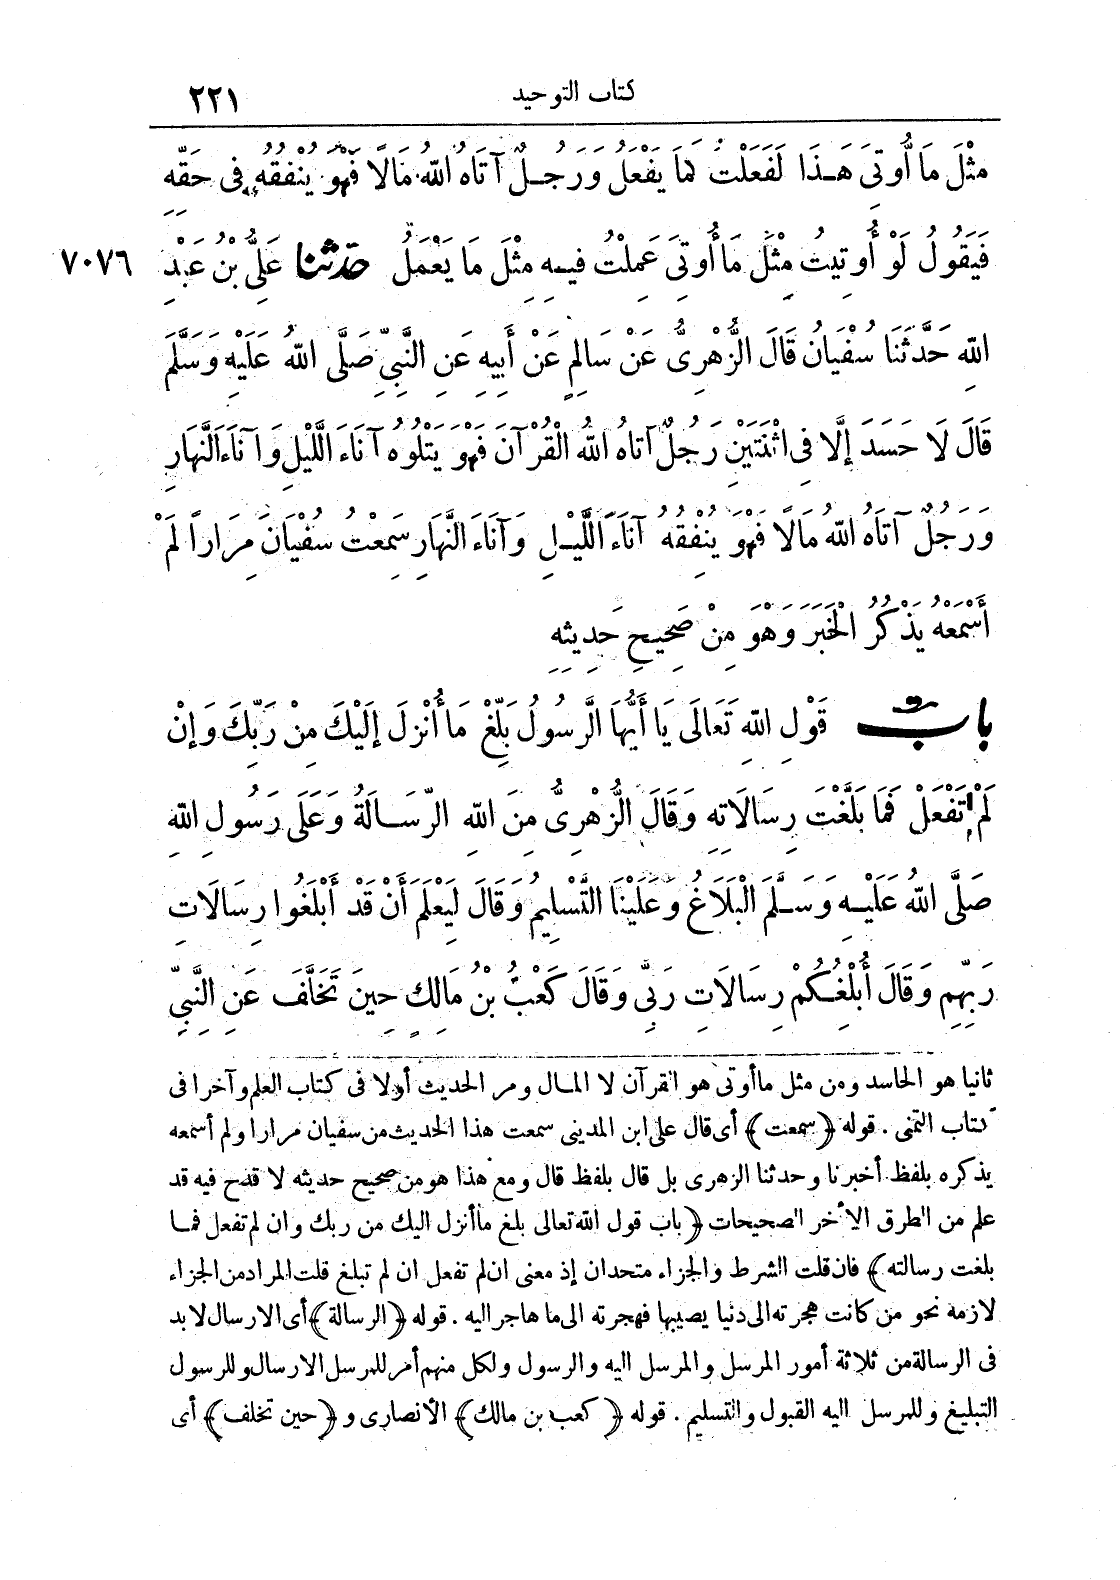 ٢٢١ كتاب التوحيد
مِثْلَ مَا أُوتِىَ هَذَا لَفَعَلْتُ كَمَا يَفْعَلُ وَرَجُلٌ آتَاهُ اللَّهُ مَالًا فَهْوَ يُنْفِقُهُ فِى حَقِّهِ
فَيَقُولُ لَوْ أُوتِيتُ مِثْلَ مَا أُوتِىَ عَمِلْتُ فِيهِ مِثْلَ مَا يَعْمَلُ حَدَّثَنَا عَلِىُّ بْنُ عَبْدِ ٧٠٧٦
اللَّهِ حَدَّثَنَا سُفْيَانُ قَالَ الزُّهْرِىُّ عَنْ سَالِمٍ عَنْ أَبِيهِ عَنِ النَّبِىِّ صَلَّى اللَّهُ عَلَيْهِ وَسَلَّمَ
قَالَ لَا حَسَدَ إِلَّا فِى اثْنَتَيْنِ رَجُلٌ آتَاهُ اللَّهُ الْقُرْآنَ فَهْوَ يَتْلُوهُ آنَاءَ اللَّيْلِ وَآنَاءَ النَّهَارِ
وَرَجُلٌ آتَاهُ اللَّهُ مَالًا فَهْوَ يُنْفِقُهُ آنَاءَ اللَّيْلِ وَآنَاءَ النَّهَارِ سَمِعْتُ سُفْيَانَ مِرَاراً لَمْ
أَسْمَعْهُ يَذْكُرُ الْخَبَرَ وَهْوَ مِنْ صَحِيحِ حَدِيثِهِ
بَابُ قَوْلِ اللَّهِ تَعَالَى يَا أَيُّهَا الرَّسُولُ بَلِّغْ مَا أُنْزِلَ إِلَيْكَ مِنْ رَبِّكَ وَإِنْ
لَمْ تَفْعَلْ فَمَا بَلَّغْتَ رِسَالَاتِهِ وَقَالَ الزُّهْرِىُّ مِنَ اللَّهِ الرِّسَالَةُ وَعَلَى رَسُولِ اللَّهِ
صَلَّى اللَّهُ عَلَيْهِ وَسَلَّمَ الْبَلَاغُ وَعَلَيْنَا التَّسْلِيمُ وَقَالَ لِيَعْلَمَ أَنْ قَدْ أَبْلَغُوا رِسَالَاتِ
رَبِّهِمْ وَقَالَ أُبْلِغُكُمْ رِسَالَاتِ رَبِّى وَقَالَ كَعْبُ بْنُ مَالِكٍ حِينَ تَخَلَّفَ عَنِ النَّبِىِّ
ثانيا هو الحاسد ومن مثل ما أوتى هو القرآن لا المال ومر الحديث أولا فى كتاب العلم وآخرا فى
كتاب التمنى . قوله ﴿سمعت﴾ أى قال على ابن المدينى سمعت هذا الحديث من سفيان مرارا ولم أسمعه
يذكره بلفظ أخبرنا وحدثنا الزهرى بل قال بلفظ قال ومع هذا هو من صحيح حديثه لا قدح فيه قد
علم من الطرق الأخر الصحيحات ﴿باب قول الله تعالى بلغ ما أنزل اليك من ربك وان لم تفعل فما
بلغت رسالته﴾ فان قلت الشرط والجزاء متحدان إذ معنى ان لم تفعل ان لم تبلغ قلت المراد من الجزاء
لازمه نحو من كانت هجرته الى دنيا يصيبها فهجرته الى ما هاجر اليه . قوله ﴿الرسالة﴾ أى الارسال لا بد
فى الرسالة من ثلاثة أمور المرسل والمرسل اليه والرسول ولكل منهم أمر للمرسل الارسال وللرسول
التبليغ وللمرسل اليه القبول والتسليم . قوله ﴿كعب بن مالك﴾ الأنصارى و﴿حين تخلف﴾ أى